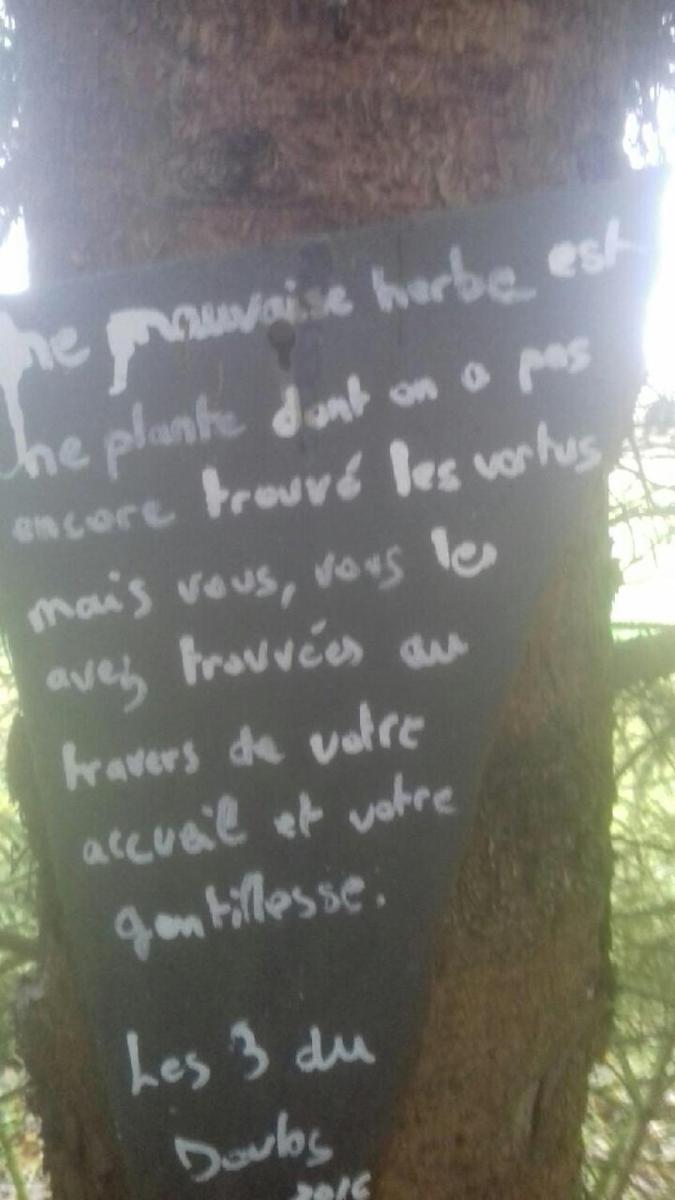 ne mauvaise herbe est
ne plante dont on a pas
encore trouvé les vertus
mais vous, vous les
avez trouvées au
travers de votre
accueil et votre
gentillesse.
Les 3 du
Doubs
2016